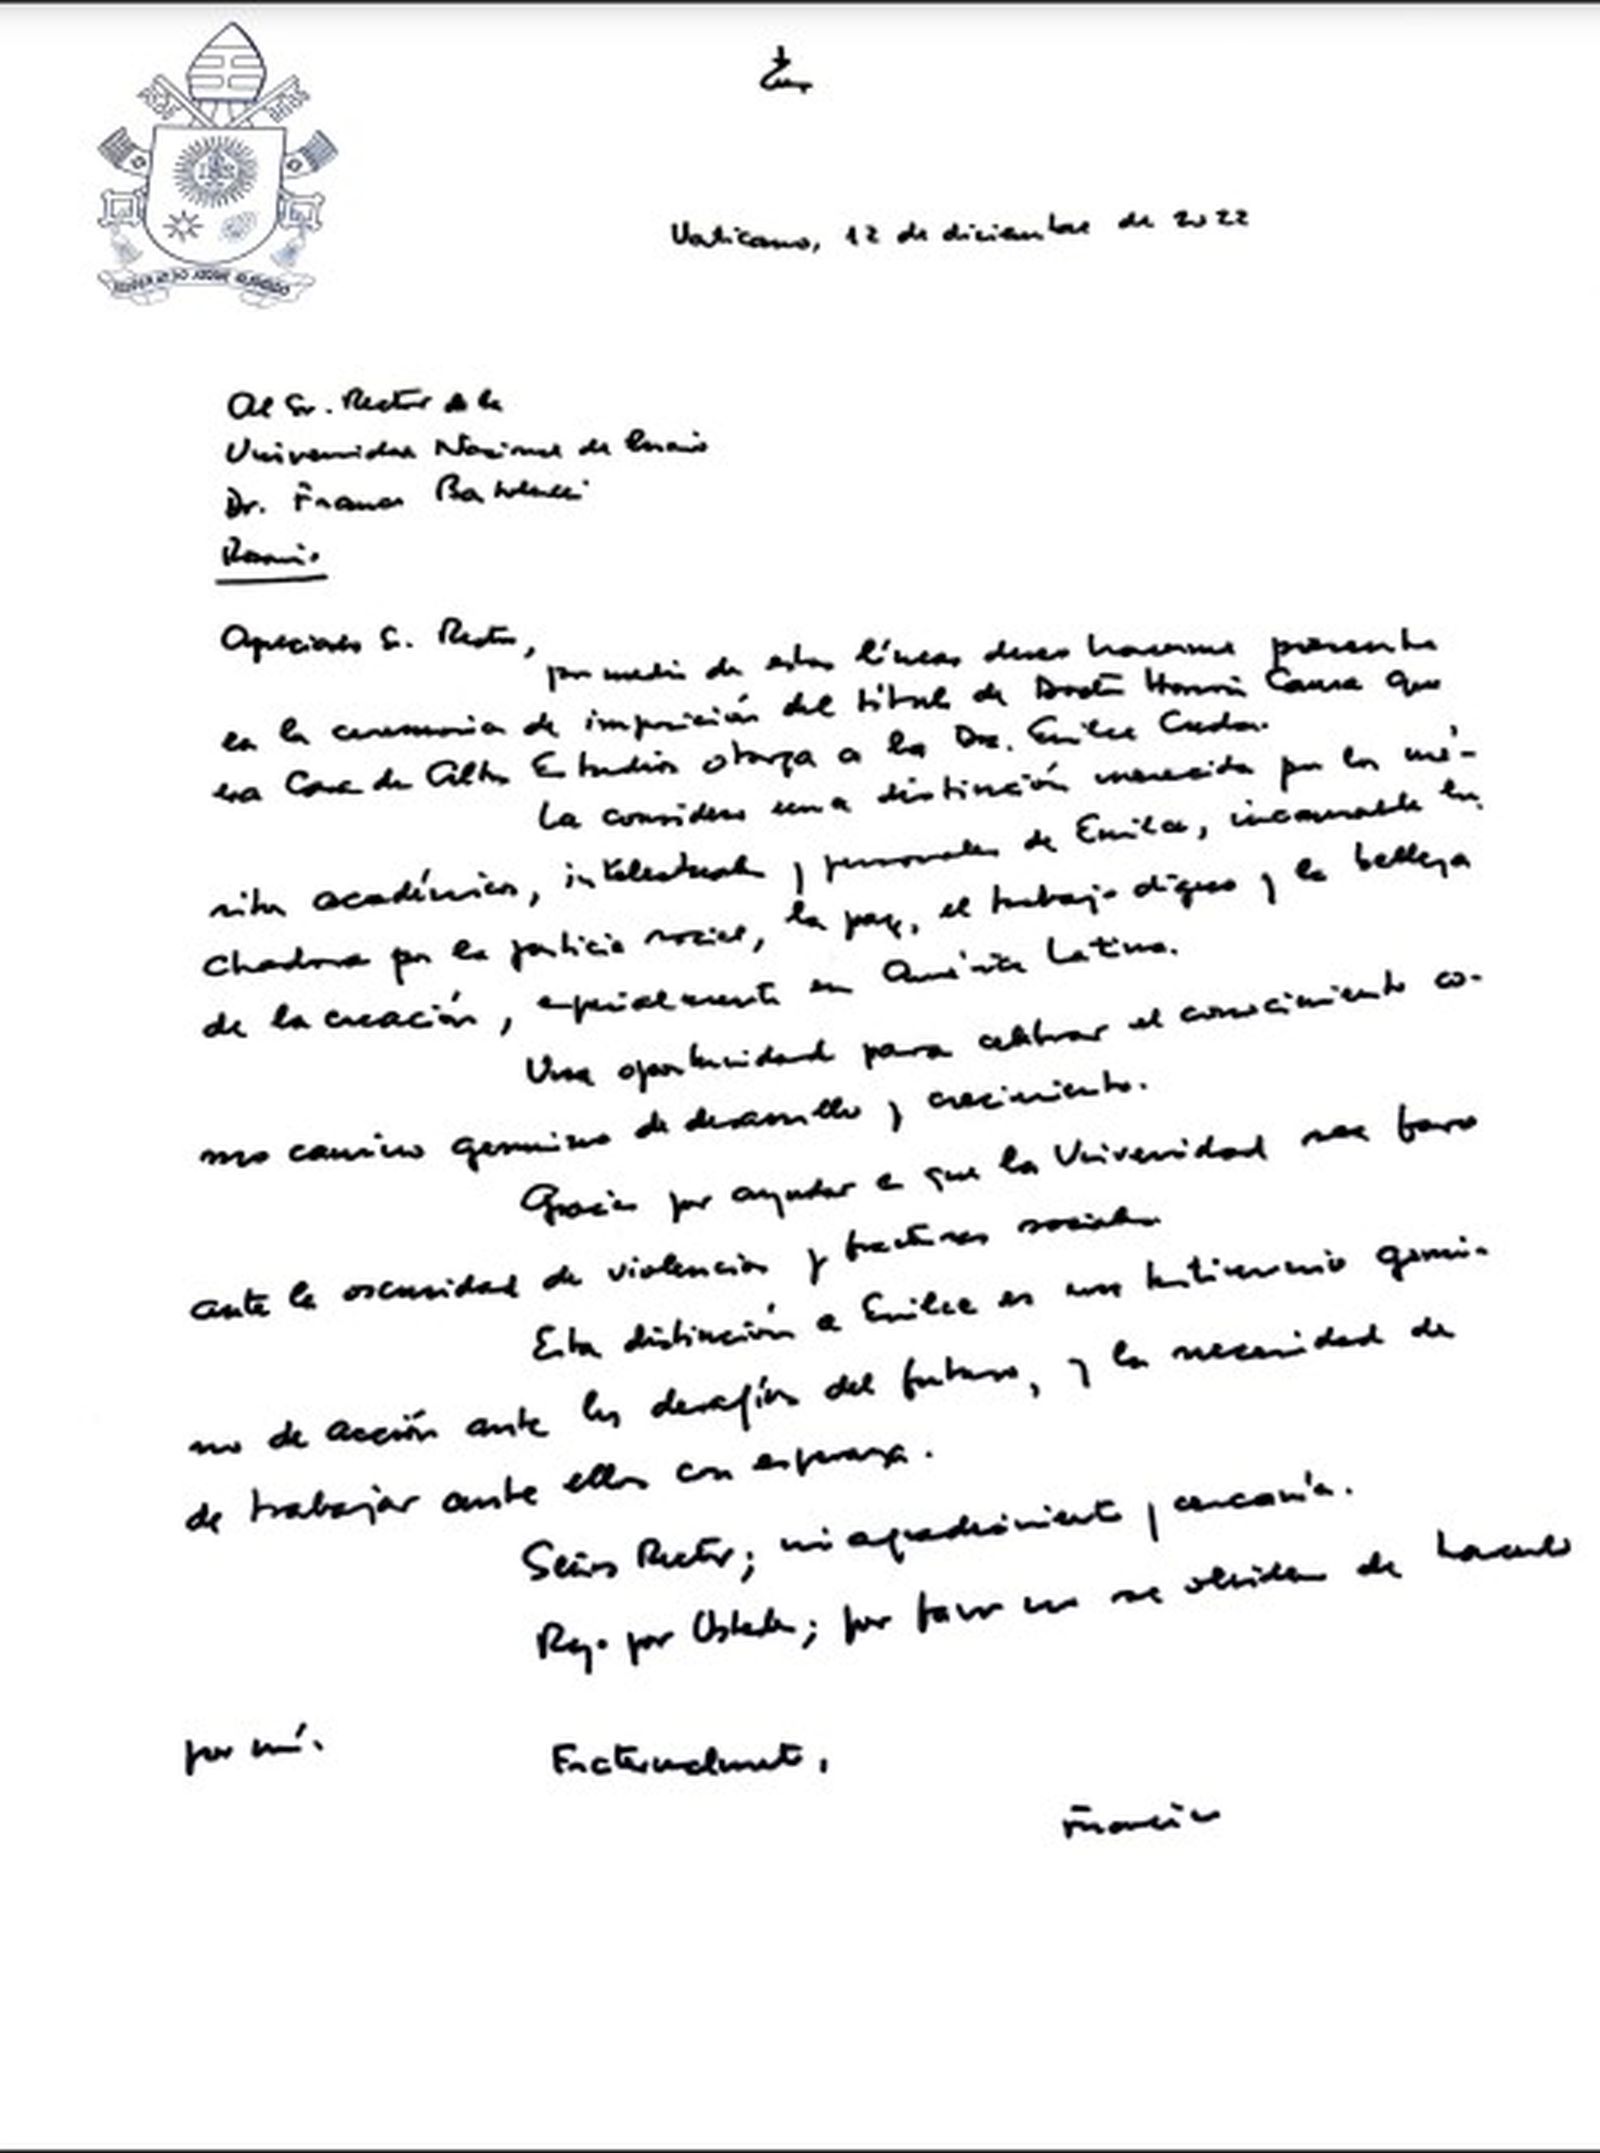 Vaticano, 12 de diciembre de 2022
Al Sr. Rector de la
Universidad Nacional de Rosario
Dr. Franco Bartolacci
Rosario
Apreciado Sr. Rector,
por medio de estas líneas deseo hacerme presente
en la ceremonia de imposición del título de Doctor Honoris Causa que
esa Casa de Altos Estudios otorga a la Dra. Emilce Cuda.
La considero una distinción merecida por los mé-
ritos académicos, intelectuales y personales de Emilce, incansable lu-
chadora por la justicia social, la paz, el trabajo digno y la belleza
de la creación, especialmente en América Latina.
Una oportunidad para celebrar el conocimiento co-
mo camino genuino de desarrollo y crecimiento.
Gracias por ayudar a que la Universidad sea faro
ante la oscuridad de violencias y fracturas sociales.
Esta distinción a Emilce es un testimonio genui-
no de acción ante los desafíos del futuro, y la necesidad de
de trabajar ante ellos con esperanza.
Señor Rector; mi agradecimiento y cercanía.
Rezo por Ustedes; por favor no se olviden de hacerlo
por mí.
Fraternalmente,
Francisco